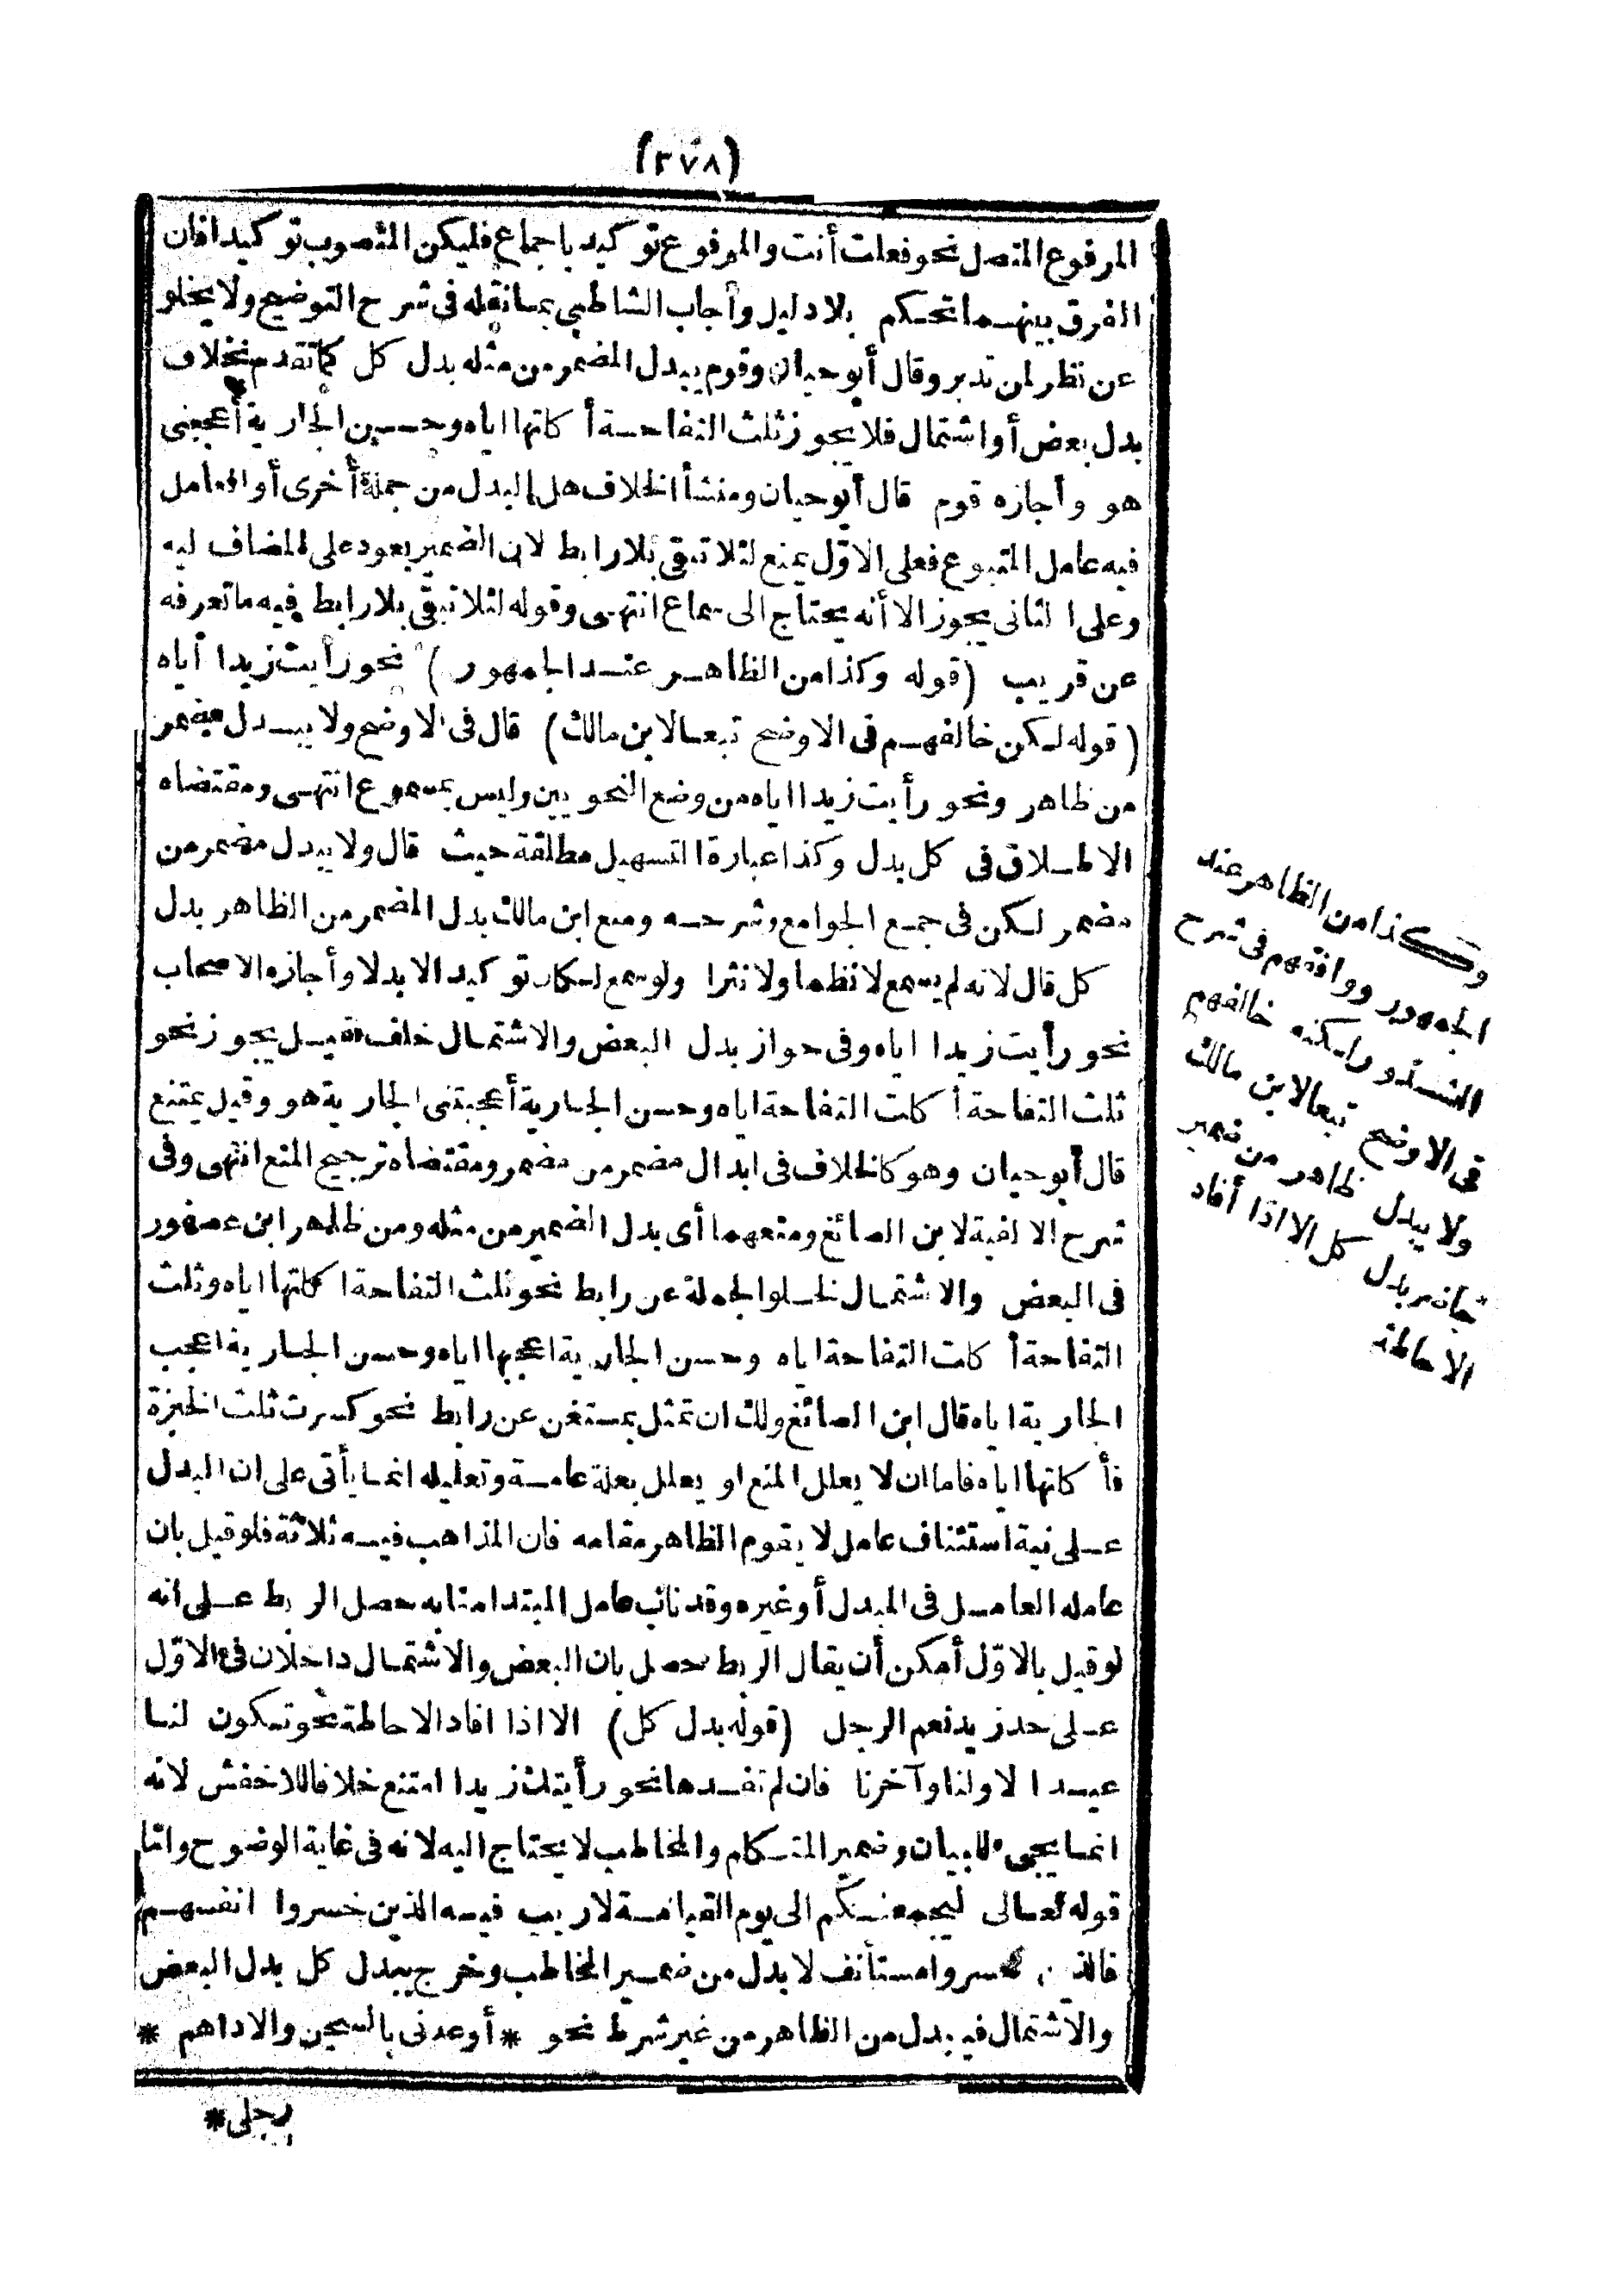 (٢٧٨)
المرفوع المتصل نحو فعلت أنت والمرفوع توكيد باجماع فليكن المنصوب توكيدا فان
الفرق بينهما تحكم بلا دليل وأجاب الشاطبي بما نقله في شرح التوضيح ولا يخلو
عن نظر لمن تدبر وقال أبو حيان وقوم يبدل المضمر من مثله بدل كل كما تقدم بخلاف
بدل بعض أو اشتمال فلا يجوز ثلث التفاحة أكلتها اياه وحسن الجارية أعجبني
هو وأجازه قوم قال أبو حيان ومنشأ الخلاف هل البدل من جملة أخرى أو العامل
فيه عامل المتبوع فعلى الاوّل يمنع لئلا تبقى بلا رابط لان الضمير يعود على المضاف ليه
وعلى الثاني يجوز الا أنه يحتاج الى سماع انتهى وقوله لئلا تبقى بلا رابط فيه ما تعرفه
عن قريب (قوله وكذا من الظاهر عند الجمهور) نحو رأيت زيدا أياه
(قوله لكن خالفهم في الاوضح تبعا لابن مالك) قال في الاوضح ولا يبدل مضمر
من ظاهر ونحو رأيت زيدا اياه من وضع النحويين وليس بمسموع انتهى ومقتضاه
الاطلاق في كل بدل وكذا عبارة التسهيل مطلقة حيث قال ولا يبدل مضمر من
مضمر لكن في جمع الجوامع وشرحه ومنع ابن مالك بدل المضمر من الظاهر بدل
كل قال لانه لم يسمع لا نظما ولا نثرا ولو سمع لكان توكيدا لا بدلا وأجازه الاصحاب
نحو رأيت زيدا اياه وفي جواز بدل البعض والاشتمال خلف قيل يجوز نحو
ثلث التفاحة أكلت التفاحة اياه وحسن الجارية أعجبتني الجارية هو وقيل يمتنع
قال أبو حيان وهو كالخلاف في ابدال مضمر من مضمر ومقتضاه ترجيح المنع انتهى وفي
شرح الالفية لابن الصائغ ومنعهما أي بدل الضمير من مثله ومن ظاهر ابن عصفور
في البعض والاشتمال لخلو الجملة عن رابط نحو ثلث التفاحة اكلتها اياه وثلث
التفاحة أكلت التفاحة اياه وحسن الجارية اعجبها اياه وحسن الجارية اعجب
الجارية اياه قال ابن الصائغ ولك ان تمثل بمستغن عن رابط نحو كسرت ثلث الخبزة
فأكلتها اياه فاما ان لا يعلل المنع او يعلل بعلة عامة وتعليله انما يأتي على ان البدل
على نية استئناف عامل لا يقوم الظاهر مقامه فان المذاهب فيه ثلاثة فلو قيل بان
عامله العامل في المبدل أو غيره وقد ناب عامل المبتدا منابه حصل الربط على انه
لو قيل بالاوّل أمكن أن يقال الربط حصل بان البعض والاشتمال داخلان في الاوّل
على حد زيد نعم الرجل (قوله بدل كل) الا اذا افاد الاحاطة نحو تكون لنا
عيدا لاولنا وآخرنا فان لم تفدها نحو رأيتك زيدا امتنع خلافا للاخفش لانه
انما يجيء للبيان وضمير المتكلم والمخاطب لا يحتاج اليه لانه في غاية الوضوح واما
قوله تعالى ليجمعنكم الى يوم القيامة لا ريب فيه الذين خسروا انفسهم
فالذين خسروا مستأنف لا بدل من ضمير المخاطب وخرج ببدل كل بدل البعض
والاشتمال فيبدل من الظاهر من غير شرط نحو * أوعدني بالسجن والاداهم *
رجلي *
وكذا من الظاهر عند
الجمهور ووافقهم في شرح
الشذور ولكنه خالفهم
في الاوضح تبعا لابن مالك
ولا يبدل ظاهر من ضمير
حاضر بدل كل الا اذا أفاد
الاحاطة